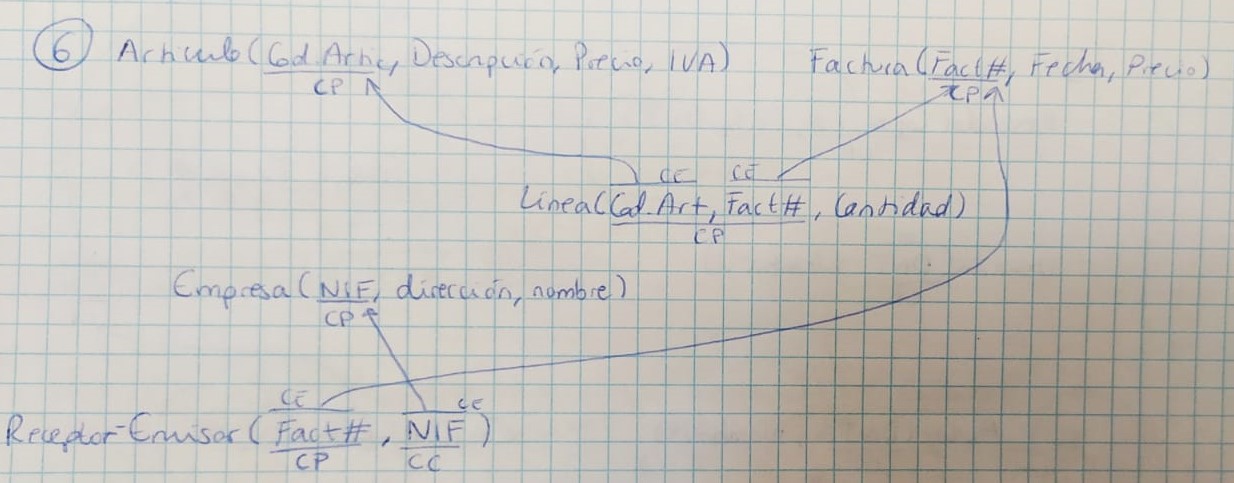 6 Artículo (Cod. Artic, Descripción, Precio, IVA) Factura (Fact#, Fecha, Precio)
CP CP
CE CE
Línea (Cod. Art, Fact#, Cantidad)
CP
Empresa (NIF, dirección, nombre)
CP
CE CE
Receptor-Emisor (Fact#, NIF)
CP CC